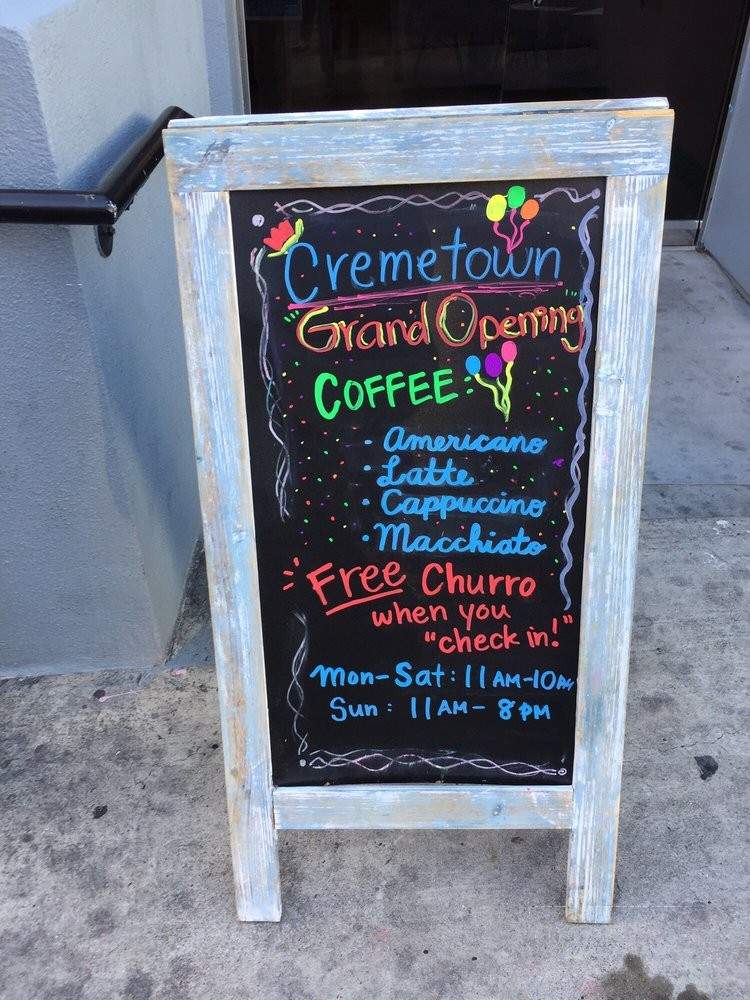 Cremetown
"Grand Opening"
COFFEE:
• Americano
• Latte
• Cappuccino
• Macchiato
Free Churro
when you
"check in!"
Mon-Sat: 11AM-10PM
Sun: 11AM-8PM